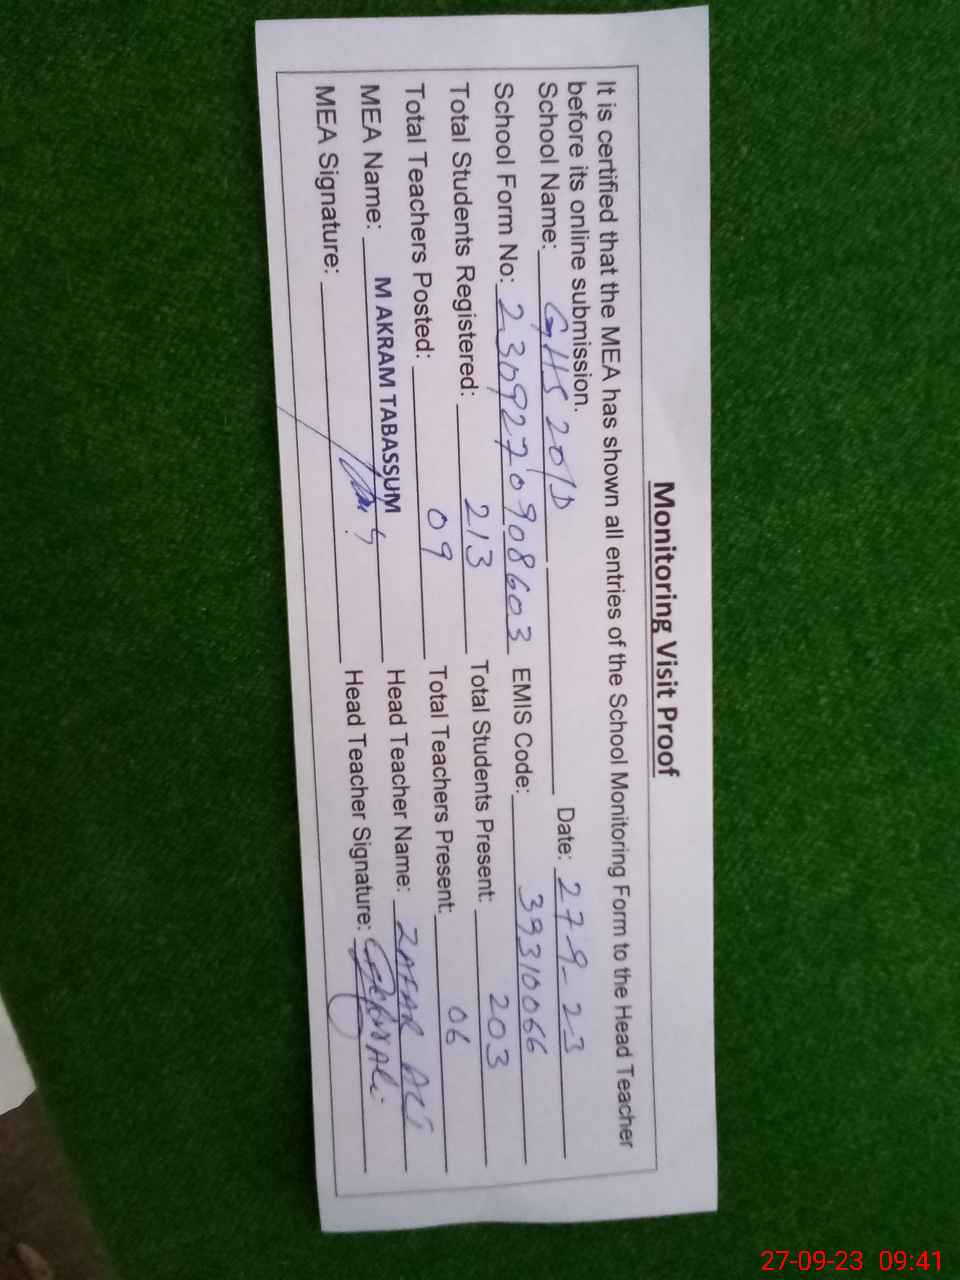 Monitoring Visit Proof
It is certified that the MEA has shown all entries of the School Monitoring Form to the Head Teacher
before its online submission.
School Name: GHS 20/D Date: 27-9-23
School Form No: 2309270908603 EMIS Code: 39310066
Total Students Registered: 213 Total Students Present: 203
Total Teachers Posted: 09 Total Teachers Present: 06
MEA Name: M AKRAM TABASSUM Head Teacher Name: ZAFAR ALI
MEA Signature: Head Teacher Signature:
27-09-23 09:41